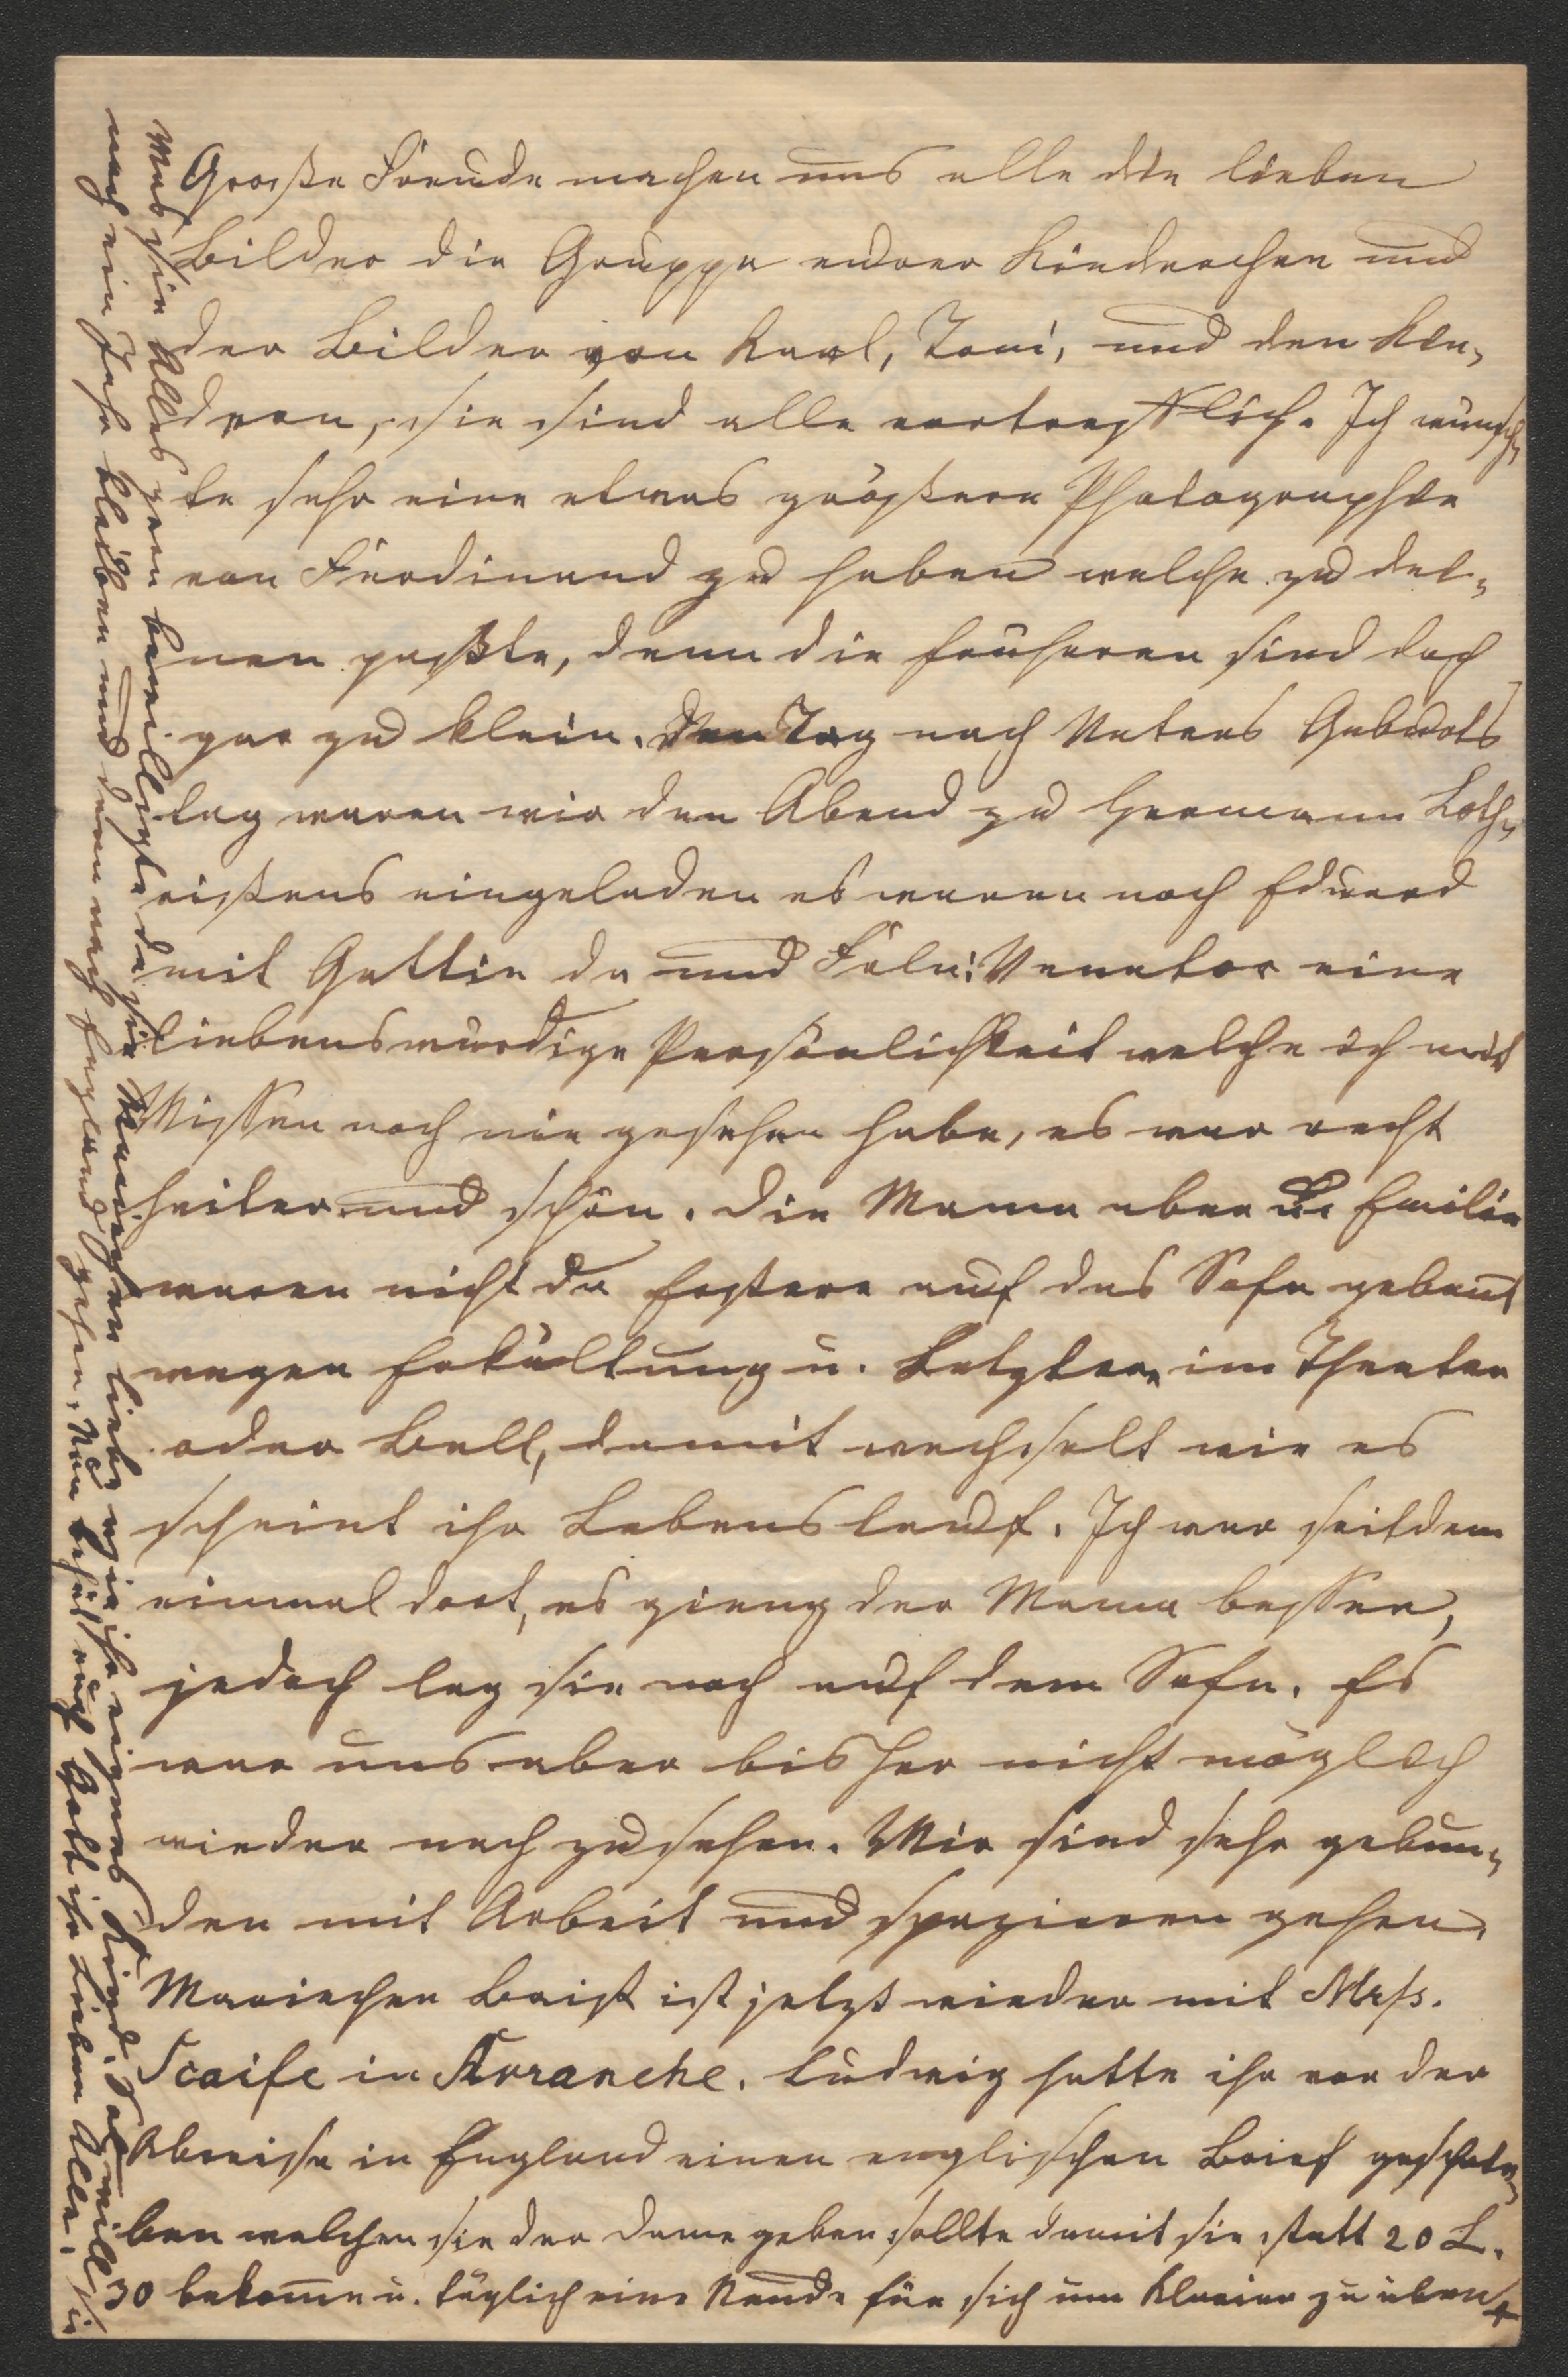 Große Freude machen uns alle die lieben
Bilder die Gruppe eurer Kinderchen und
der Bilder von Karl, Toni, und den Kin-
dern, sie sind alle vortrefflich. Ich wünsch-
te sehr eine etwas größere Photographie
von Ferdinand zu haben welche zu dei-
nen paßte, denn die früheren sind doch
gar zu klein. Den Tag nach Vaters Geburts
tag waren wir den Abend zu Hermann
eingeladen es waren noch Eduard
mit Gattin da und Frln: Venator eine
liebenswürdige Persönlichkeit welche ich mit
Wissen noch nie gesehen habe, es war recht
heiter und schön. Die Mama aber u. Emilie
waren nicht da Erstere auf das Sofa gebannt
wegen Erkältung u. Letztere im Theater
oder Ball, damit wechselt wie es
scheint ihr Lebenslauf. Ich war seitdem
einmal dort, es gieng der Mama besser,
jedoch lag sie noch auf dem Sofa. Es
war uns aber bisher nicht möglich
wieder nach zu sehen. Wir sind sehr gebun-
den mit Arbeit und spazieren gehen.
Mariechen Baist ist jetzt wieder mit Mrss.
Scaife in Avranche. Ludwig hatte ihr vor der
Abreise in England einen englischen Brief geschrie-
ben welchen sie der Dame geben sollte damit sie statt 20 L.
30 bekomme u. täglich eine Stunde für sich um Klavier zu üben +
Was sie Alles gern bewilligte da sie Mariechen liebe wie ihr eignes Kind. Ja will sie
noch ein Jahr bleiben und dann nach England gehen. Nun behüt euch Gott ihr Lieben Alle.